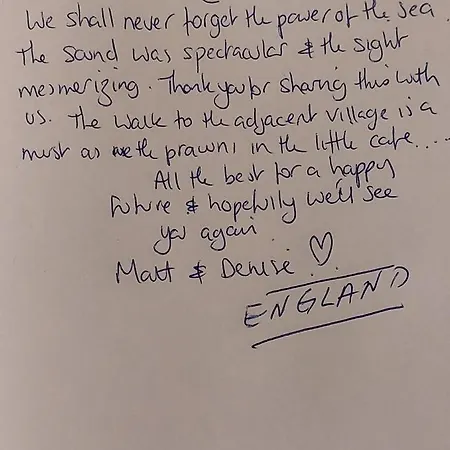 We shall never forget the power of the sea.
The sound was spectacular & the sight
mesmerizing. Thank you for sharing this with
us. The walk to the adjacent village is a
must as are the prawns in the little cafe....
All the best for a happy
future & hopefully we'll see
you again.
Matt & Denise ♡
ENGLAND